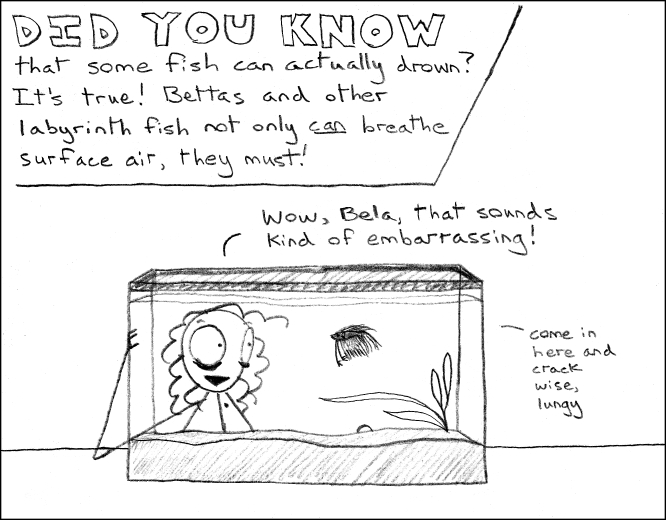 DID YOU KNOW
that some fish can actually drown?
It's true! Bettas and other
labyrinth fish not only can breathe
surface air, they must!
Wow, Bela, that sounds
kind of embarrassing!
come in
here and
crack
wise,
lungy